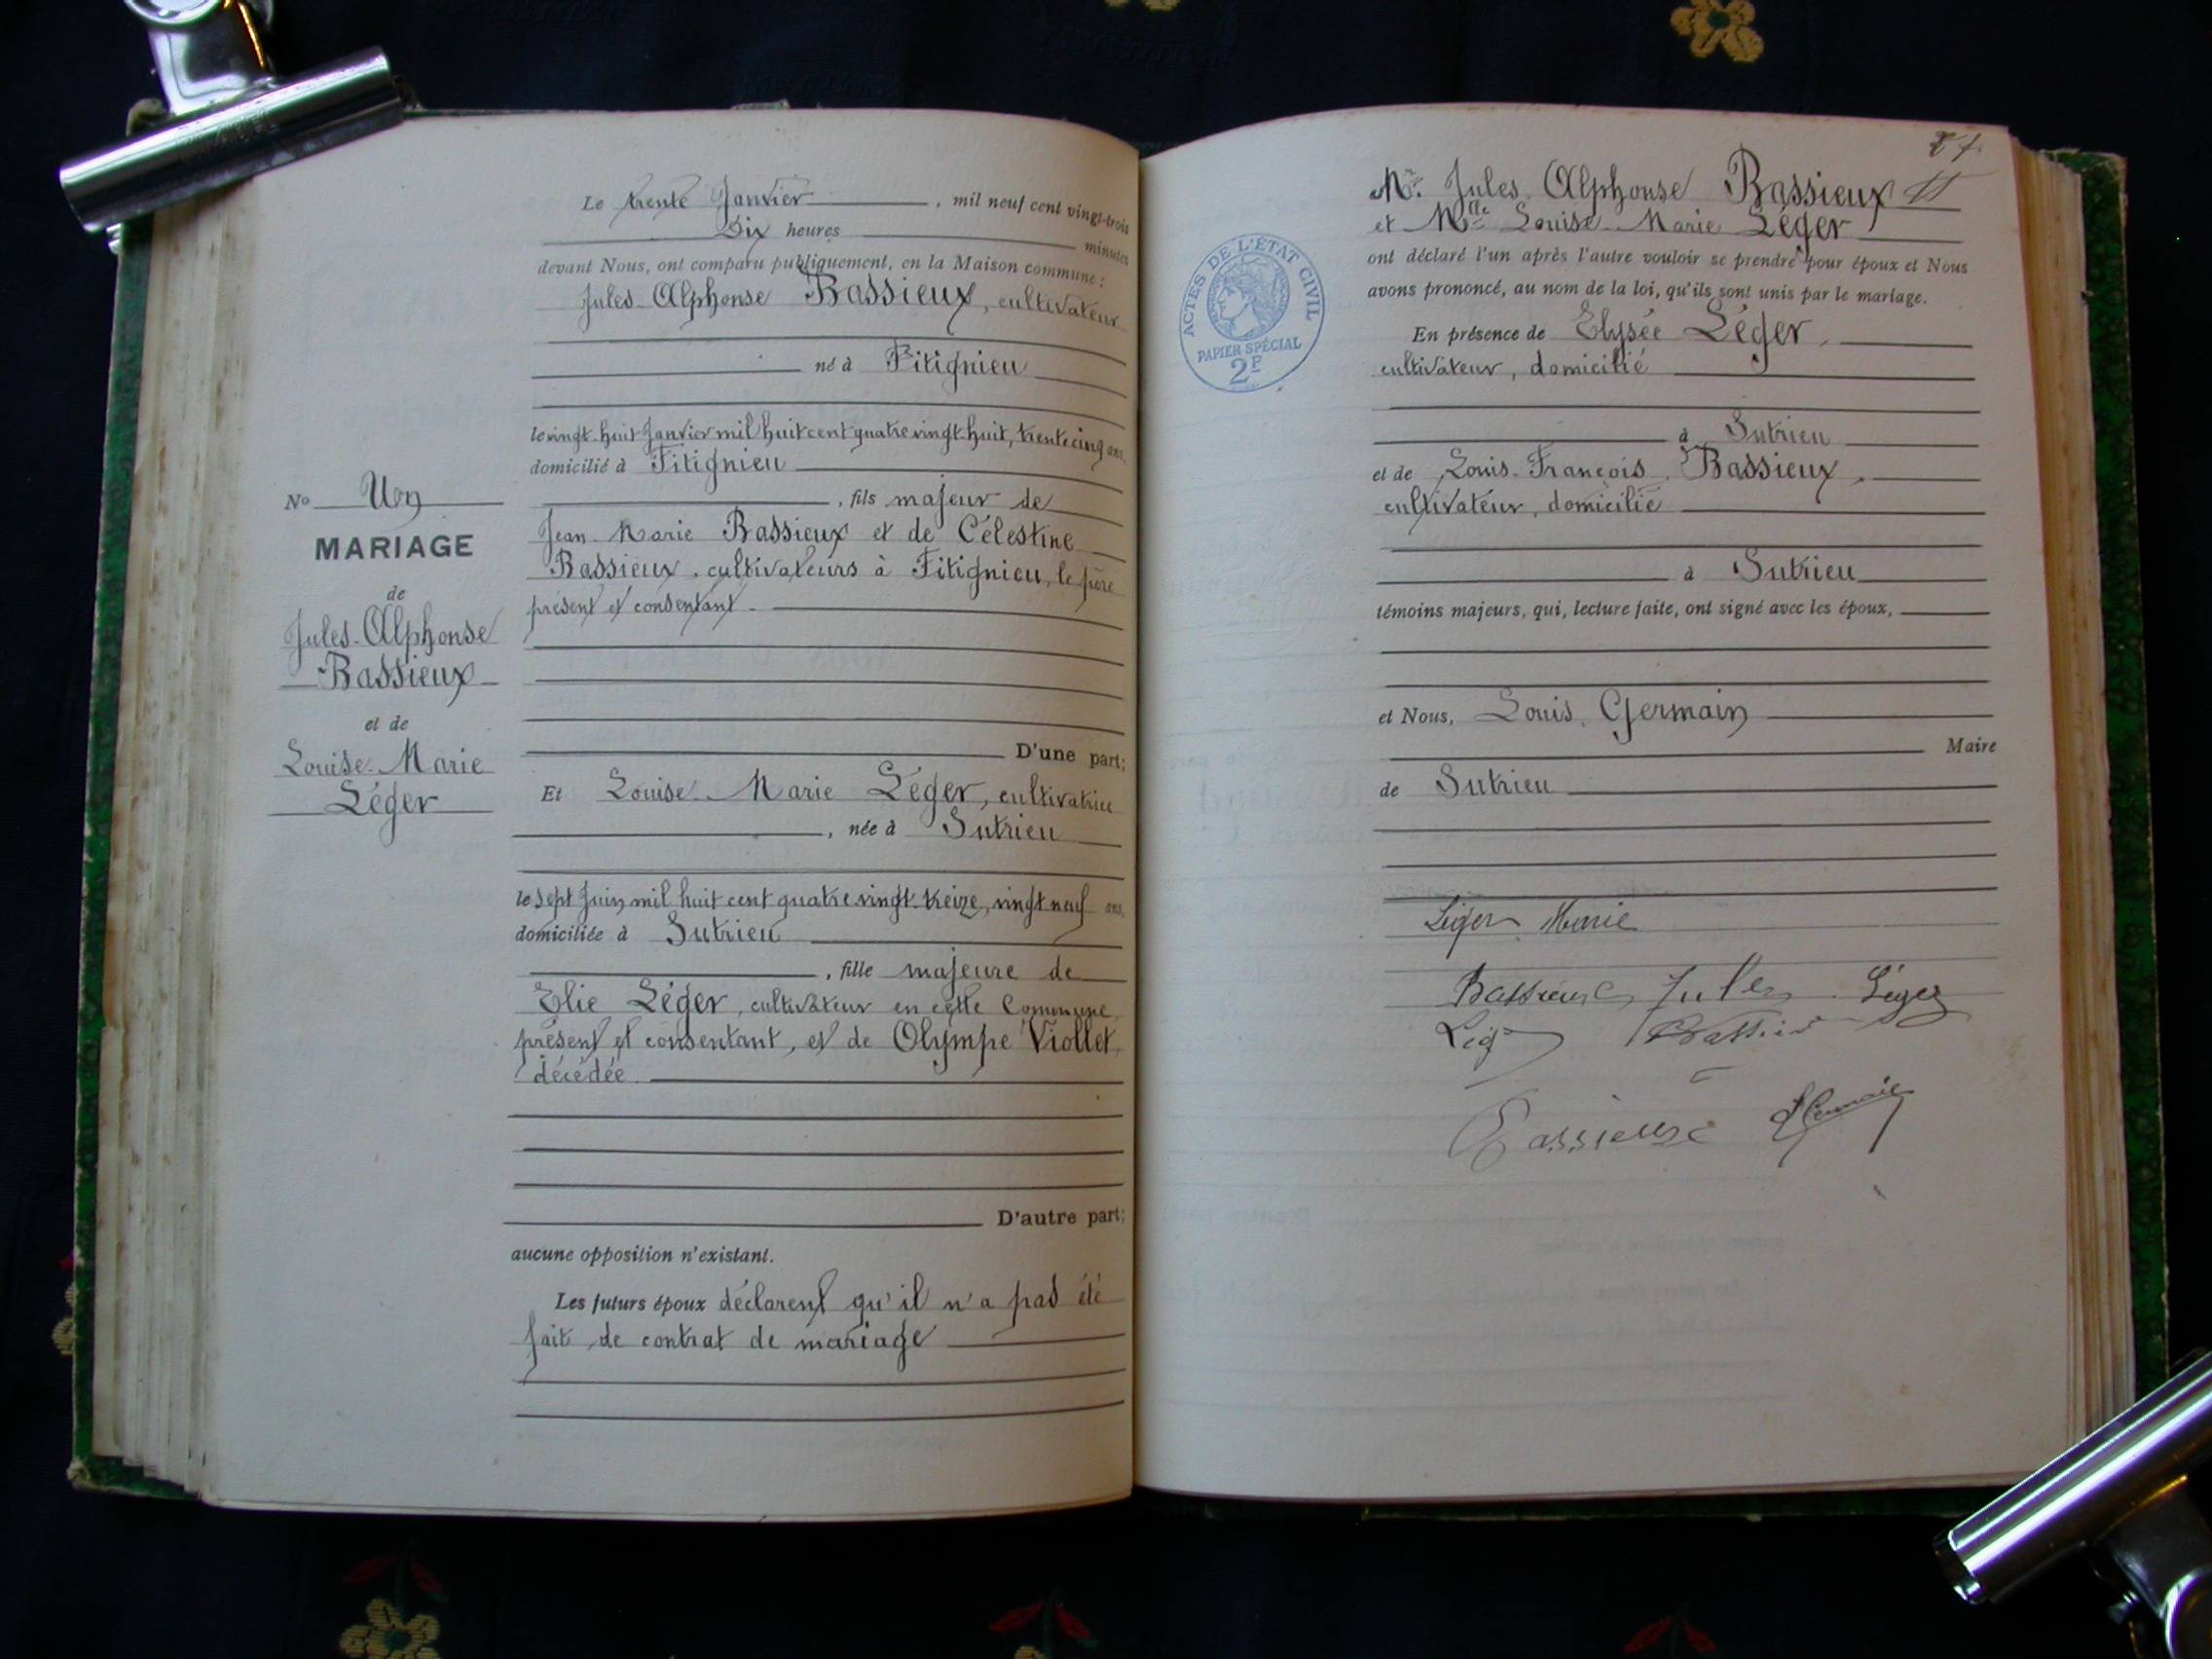 Le trente Janvier, mil neuf cent vingt-trois
Dix heures minutes
devant Nous, ont comparu publiquement, en la Maison commune :
Jules Alphonse Bassieux, cultivateur
né à Fitignieu
le vingt-huit Janvier mil huit cent quatre vingt-huit, trente cinq ans,
domicilié à Fitignieu
, fils majeur de
Jean-Marie Bassieux et de Célestine
Bassieux, cultivateurs à Fitignieu, le père
présent et consentant.
D'une part;
Et Louise-Marie Léger, cultivatrice
, née à Sutrieu
le sept Juin mil huit cent quatre vingt-treize, vingt neuf ans,
domiciliée à Sutrieu
, fille majeure de
Elie Léger, cultivateur en cette Commune,
présent et consentant, et de Olympe Viollet,
décédée.
D'autre part;
aucune opposition n'existant.
Les futurs époux déclarent qu'il n'a pas été
fait de contrat de mariage
No Un
MARIAGE
de
Jules-Alphonse
Bassieux
et de
Louise-Marie
Léger
27
Mr. Jules Alphonse Bassieux
et Mlle Louise-Marie Léger
ont déclaré l'un après l'autre vouloir se prendre pour époux et Nous
avons prononcé, au nom de la loi, qu'ils sont unis par le mariage.
En présence de Elysée Léger,
cultivateur, domicilié
à Sutrieu
et de Louis-François Bassieux,
cultivateur, domicilié
à Sutrieu
témoins majeurs, qui, lecture faite, ont signé avec les époux,
et Nous, Louis Germain
Maire
de Sutrieu
ACTES DE L'ÉTAT CIVIL
PAPIER SPÉCIAL
2F
Léger Marie
Bassieux Jules Léger
Bassieux LGermain